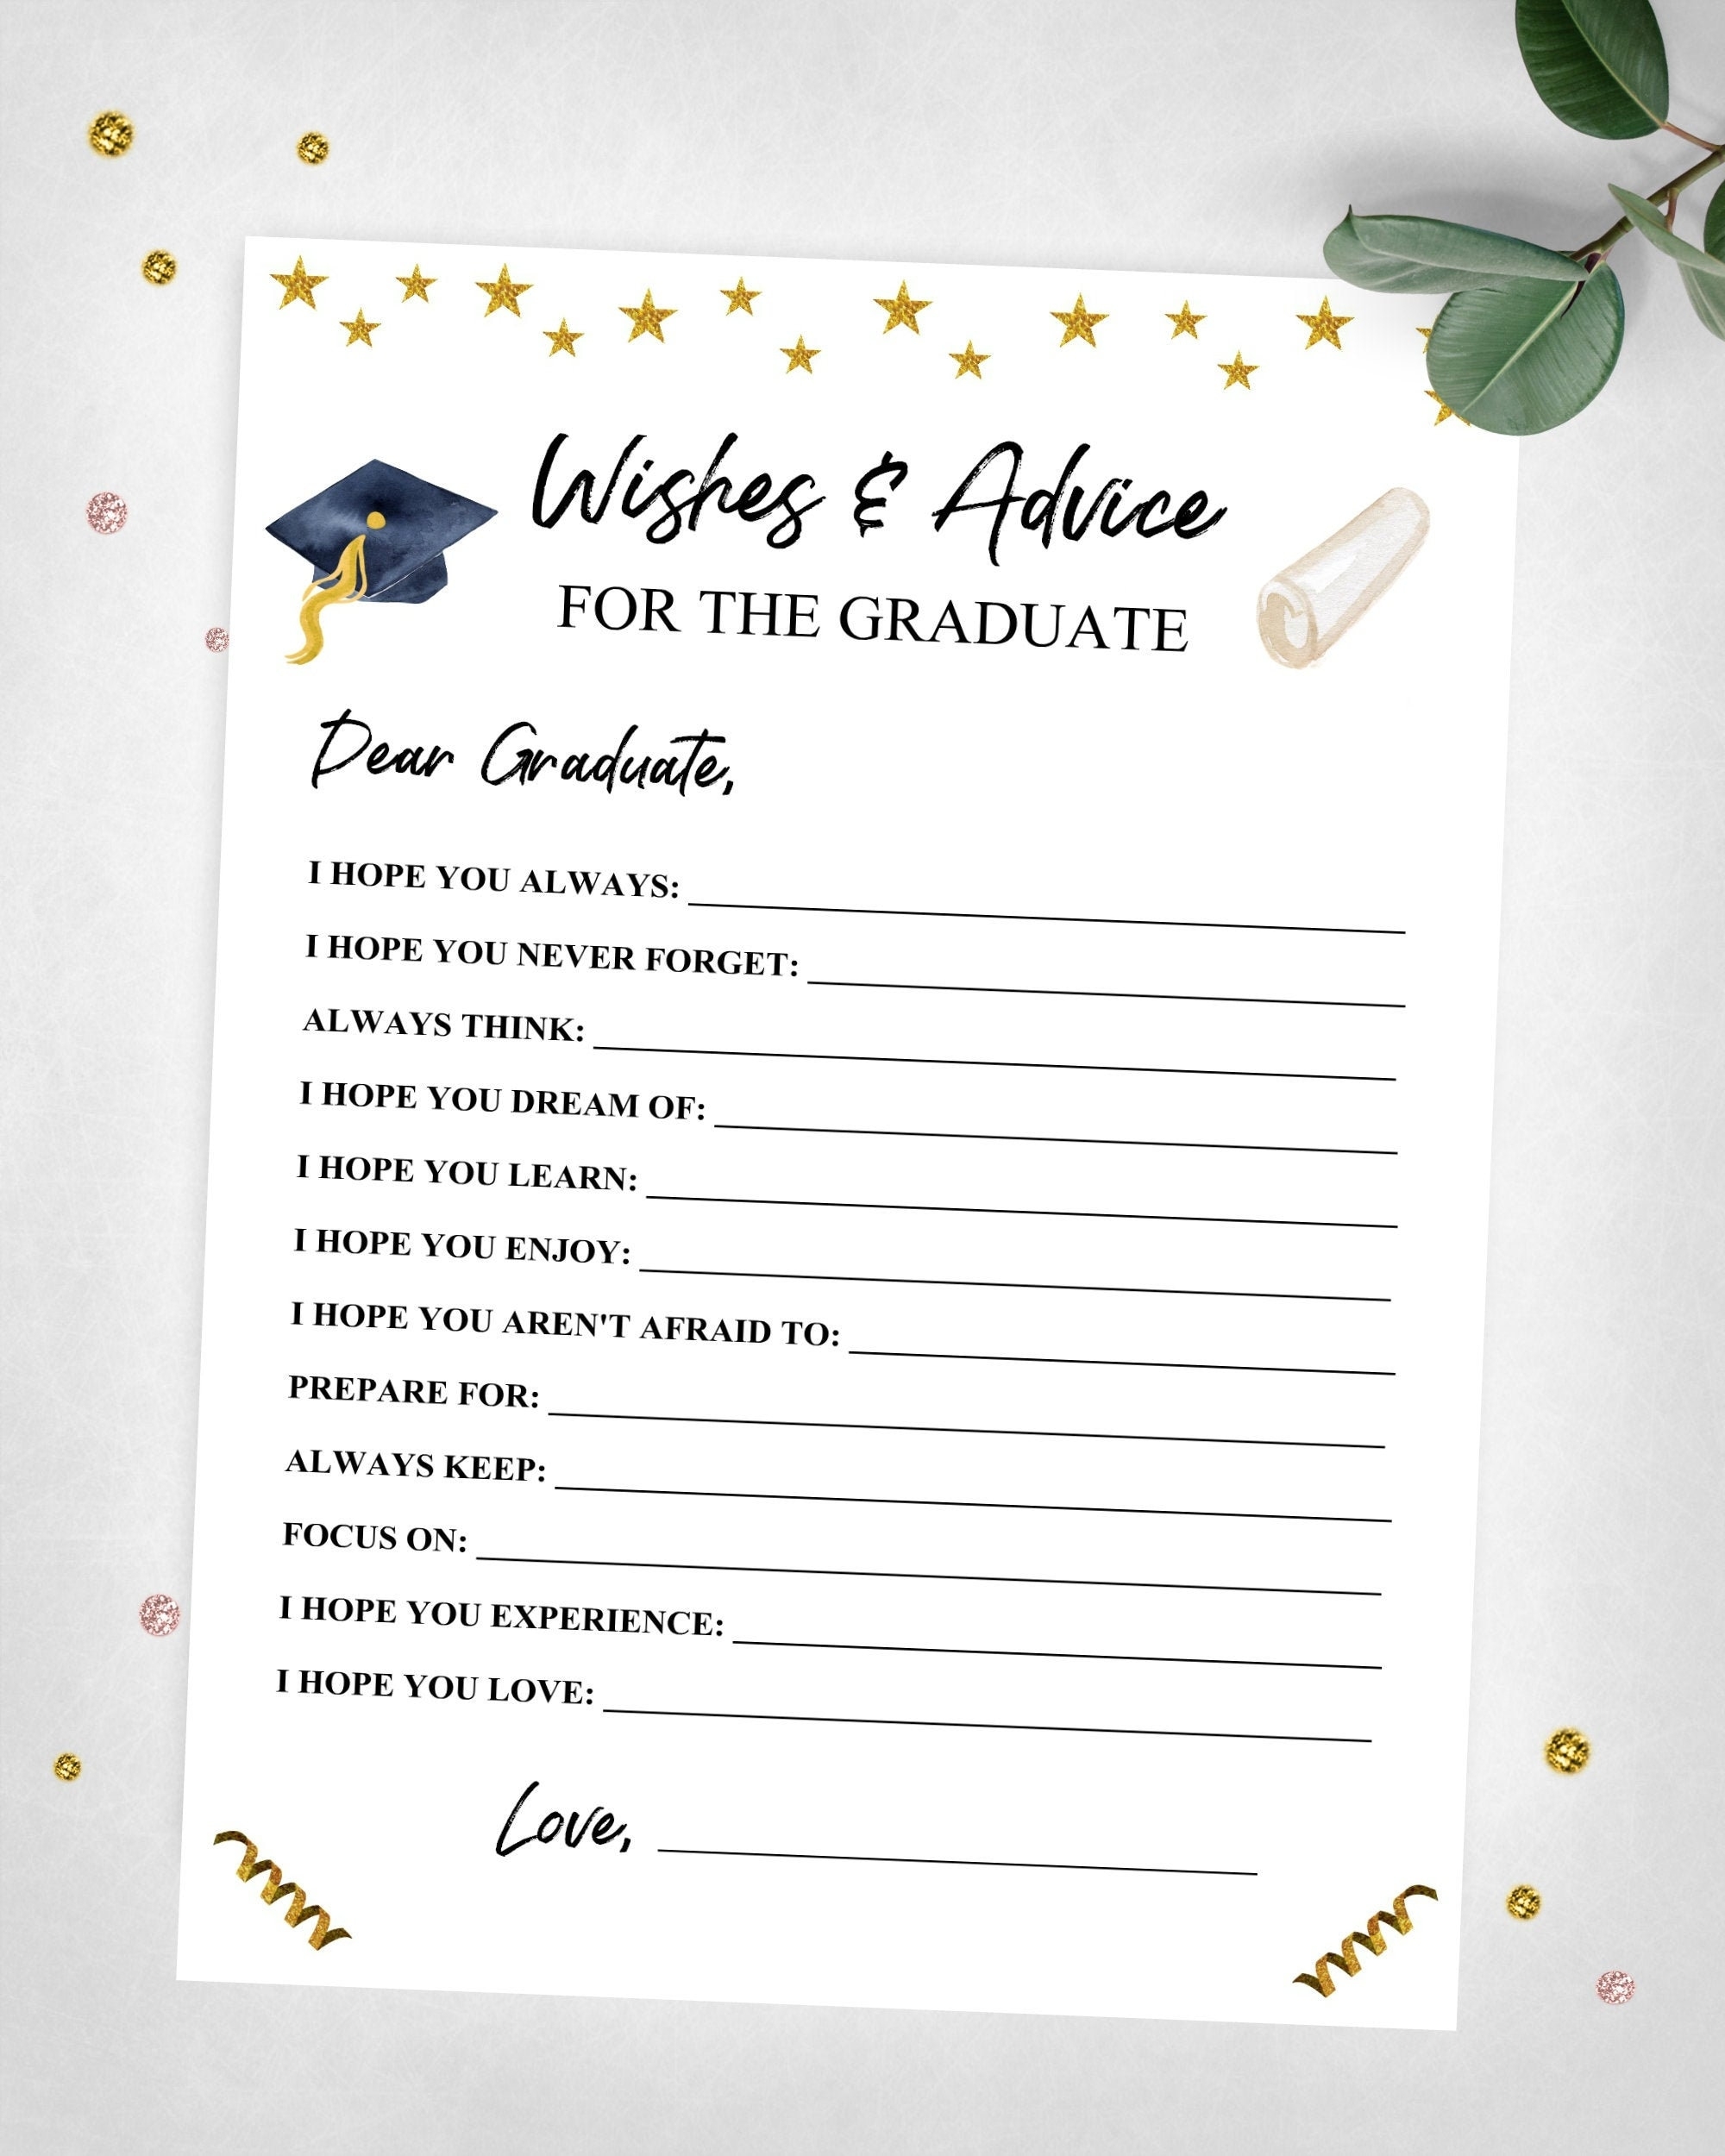 Wishes & Advice
FOR THE GRADUATE
Dear Graduate,
I HOPE YOU ALWAYS:
I HOPE YOU NEVER FORGET:
ALWAYS THINK:
I HOPE YOU DREAM OF:
I HOPE YOU LEARN:
I HOPE YOU ENJOY:
I HOPE YOU AREN'T AFRAID TO:
PREPARE FOR:
ALWAYS KEEP:
FOCUS ON:
I HOPE YOU EXPERIENCE:
I HOPE YOU LOVE:
Love,